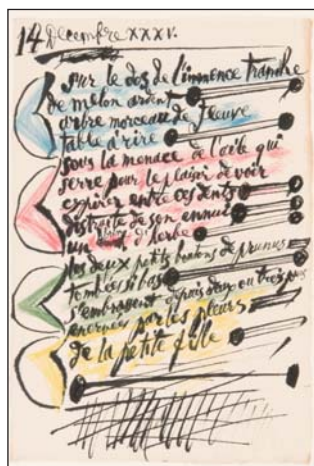 14 Decembre XXXV.
sur le dos de l'immence tranche
de melon ardent
arbre morceau de fleuve
table a rire
sous la menace de l'aile qui
serre pour le plaisir de voir
expirer entre ses dents
distraite de son ennui
un d'herbe
les deux petits boutons de prunus
tombés si bas
s'embrassent depuis deux ou trois
enervés par les pleurs
de la petite fille